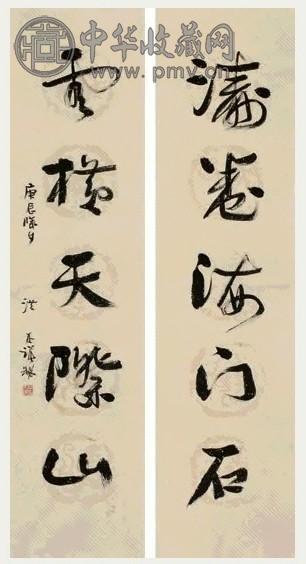 中华收藏网
www.pmv.cn
濤卷海门石
雲横天際山
庚辰除夕 洪丕謨